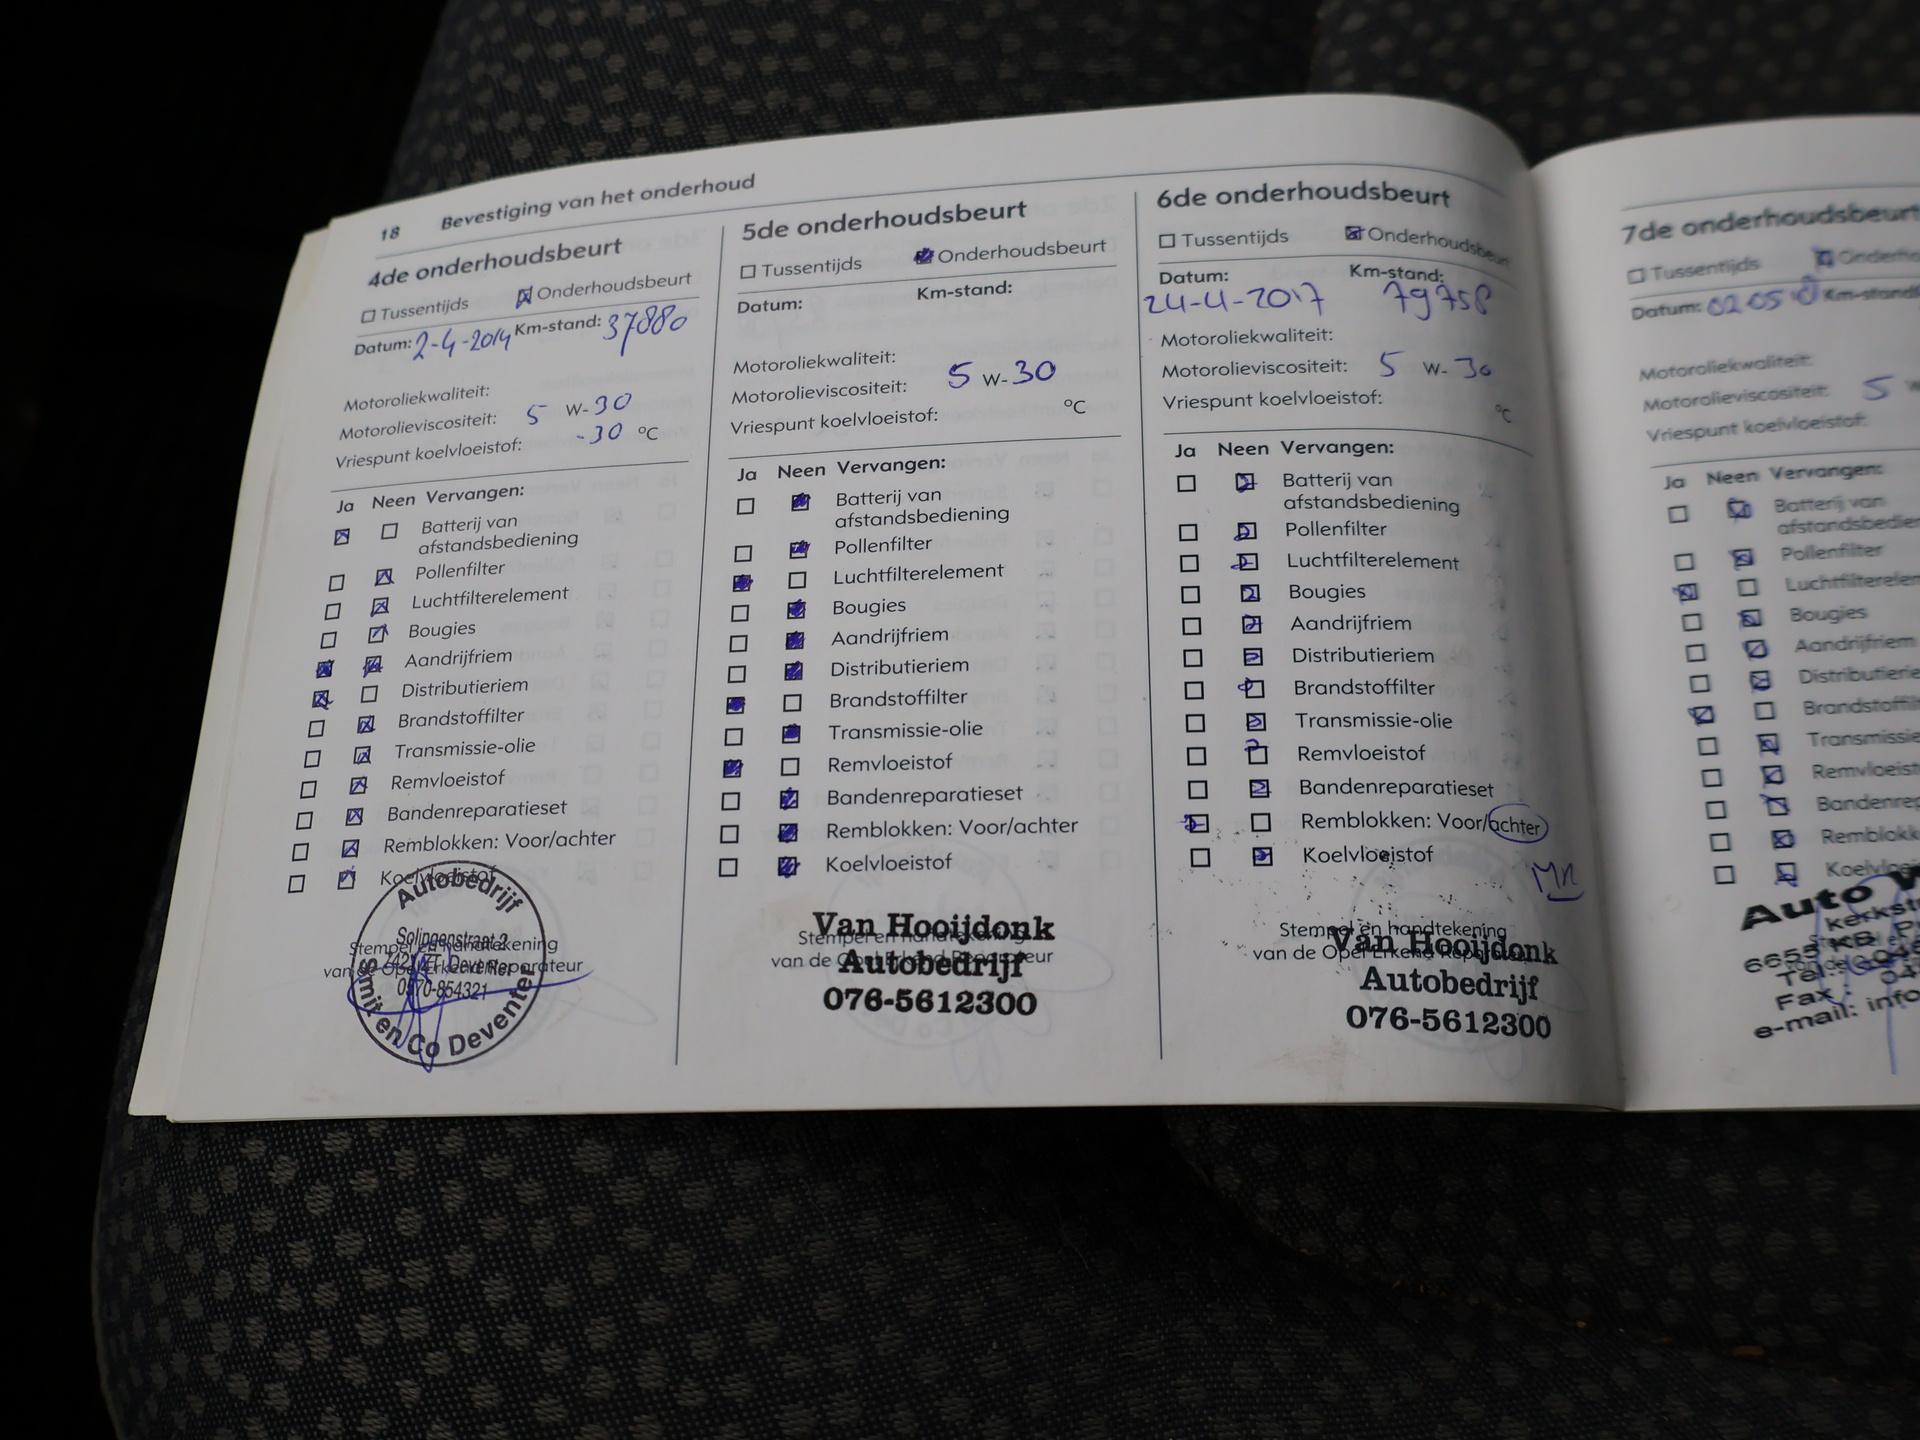 18 Bevestiging van het onderhoud
4de onderhoudsbeurt
Tussentijds Onderhoudsbeurt
Datum: 2-4-2014 Km-stand: 37880
Motoroliekwaliteit:
Motorolieviscositeit: 5 W-30
Vriespunt koelvloeistof: -30 °C
Ja Neen Vervangen:
Batterij van
afstandsbediening
Pollenfilter
Luchtfilterelement
Bougies
Aandrijfriem
Distributieriem
Brandstoffilter
Transmissie-olie
Remvloeistof
Bandenreparatieset
Remblokken: Voor/achter
Koelvloeistof
Stempel en handtekening
van de Opel Erkend Reparateur
Autobedrijf
Solingenstraat 2
Deventer
0570-854321
Smit en Co Deventer
5de onderhoudsbeurt
Tussentijds Onderhoudsbeurt
Datum: Km-stand:
Motoroliekwaliteit:
Motorolieviscositeit: 5 W-30
Vriespunt koelvloeistof: °C
Ja Neen Vervangen:
Batterij van
afstandsbediening
Pollenfilter
Luchtfilterelement
Bougies
Aandrijfriem
Distributieriem
Brandstoffilter
Transmissie-olie
Remvloeistof
Bandenreparatieset
Remblokken: Voor/achter
Koelvloeistof
Stempel en handtekening
van de Opel Erkend Reparateur
Van Hooijdonk
Autobedrijf
076-5612300
6de onderhoudsbeurt
Tussentijds Onderhoudsbeurt
Datum: Km-stand:
24-4-2017 79758
Motoroliekwaliteit:
Motorolieviscositeit: 5 W-30
Vriespunt koelvloeistof: °C
Ja Neen Vervangen:
Batterij van
afstandsbediening
Pollenfilter
Luchtfilterelement
Bougies
Aandrijfriem
Distributieriem
Brandstoffilter
Transmissie-olie
Remvloeistof
Bandenreparatieset
Remblokken: Voor/achter
Koelvloeistof
Stempel en handtekening
van de Opel Erkend Reparateur
Van Hooijdonk
Autobedrijf
076-5612300
7de onderhoudsbeurt
Tussentijds Onderho
Datum: Km-stand
Motoroliekwaliteit:
Motorolieviscositeit: 5 W
Vriespunt koelvloeistof:
Ja Neen Vervangen:
Batterij van
afstandsbedien
Pollenfilter
Luchtfilterelem
Bougies
Aandrijfriem
Distributierie
Brandstoffilt
Transmissie
Remvloeist
Bandenrep
Remblokk
Koelvloei
Auto
kerkstr
6655 KB
Tel
Fax :
e-mail: info